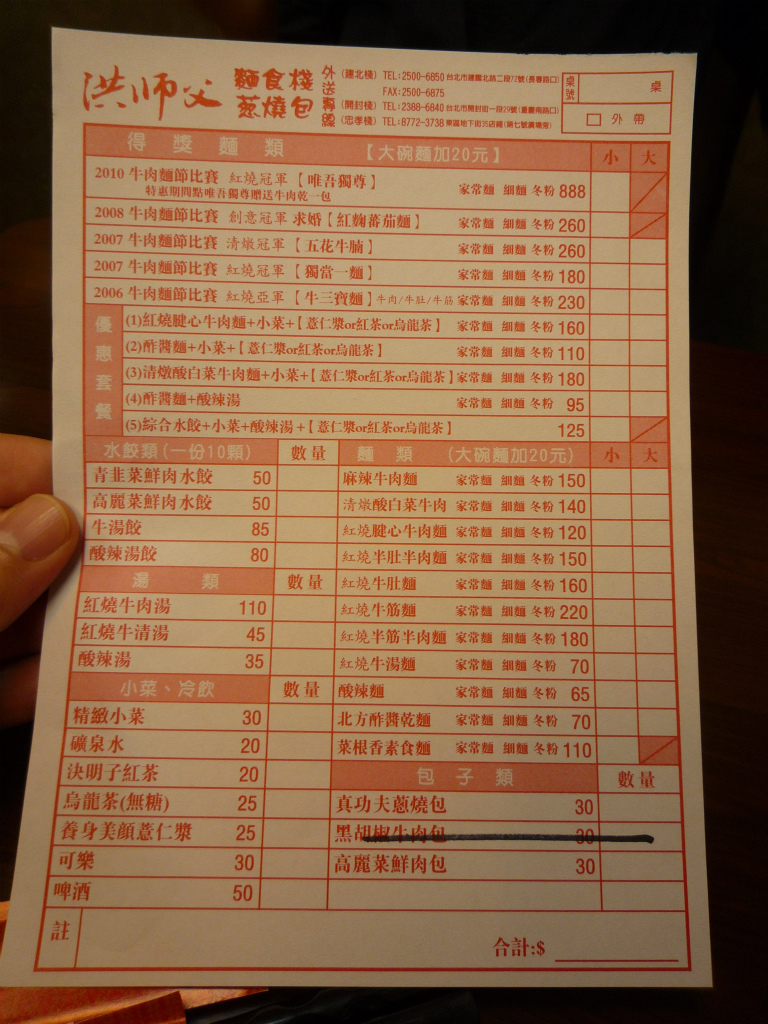 洪师父 麵食棧 蔥燒包
外送專線
(建北棧) TEL:2500-6850 台北市建國北路二段72號(長春路口)
FAX:2500-6875
(開封棧) TEL:2388-6840 台北市開封街一段29號(重慶南路口)
(忠孝棧) TEL:8772-3738 東區地下街35店鋪(第七號廣場旁)
桌號 桌
□ 外帶
得獎麵類 【大碗麵加20元】 小 大
2010 牛肉麵節比賽 紅燒冠軍【唯吾獨尊】 家常麵 細麵 冬粉 888
特惠期間點唯吾獨尊贈送牛肉乾一包
2008 牛肉麵節比賽 創意冠軍 求婚【紅麴蕃茄麵】 家常麵 細麵 冬粉 260
2007 牛肉麵節比賽 清燉冠軍【五花牛腩】 家常麵 細麵 冬粉 260
2007 牛肉麵節比賽 紅燒冠軍【獨當一麵】 家常麵 細麵 冬粉 180
2006 牛肉麵節比賽 紅燒亞軍【牛三寶麵】牛肉/牛肚/牛筋 家常麵 細麵 冬粉 230
優惠套餐
(1)紅燒腱心牛肉麵+小菜+【薏仁漿or紅茶or烏龍茶】 家常麵 細麵 冬粉 160
(2)酢醬麵+小菜+【薏仁漿or紅茶or烏龍茶】 家常麵 細麵 冬粉 110
(3)清燉酸白菜牛肉麵+小菜+【薏仁漿or紅茶or烏龍茶】 家常麵 細麵 冬粉 180
(4)酢醬麵+酸辣湯 家常麵 細麵 冬粉 95
(5)綜合水餃+小菜+酸辣湯+【薏仁漿or紅茶or烏龍茶】 125
水餃類(一份10顆) 數量
青韭菜鮮肉水餃 50
高麗菜鮮肉水餃 50
牛湯餃 85
酸辣湯餃 80
湯類 數量
紅燒牛肉湯 110
紅燒牛清湯 45
酸辣湯 35
小菜、冷飲 數量
精緻小菜 30
礦泉水 20
決明子紅茶 20
烏龍茶(無糖) 25
養身美顏薏仁漿 25
可樂 30
啤酒 50
麵類 (大碗麵加20元) 小 大
麻辣牛肉麵 家常麵 細麵 冬粉 150
清燉酸白菜牛肉 家常麵 細麵 冬粉 140
紅燒腱心牛肉麵 家常麵 細麵 冬粉 120
紅燒半肚半肉麵 家常麵 細麵 冬粉 150
紅燒牛肚麵 家常麵 細麵 冬粉 160
紅燒牛筋麵 家常麵 細麵 冬粉 220
紅燒半筋半肉麵 家常麵 細麵 冬粉 180
紅燒牛湯麵 家常麵 細麵 冬粉 70
酸辣麵 家常麵 細麵 冬粉 65
北方酢醬乾麵 家常麵 細麵 冬粉 70
菜根香素食麵 家常麵 細麵 冬粉 110
包子類 數量
真功夫蔥燒包 30
黑胡椒牛肉包 30
高麗菜鮮肉包 30
註
合計:$